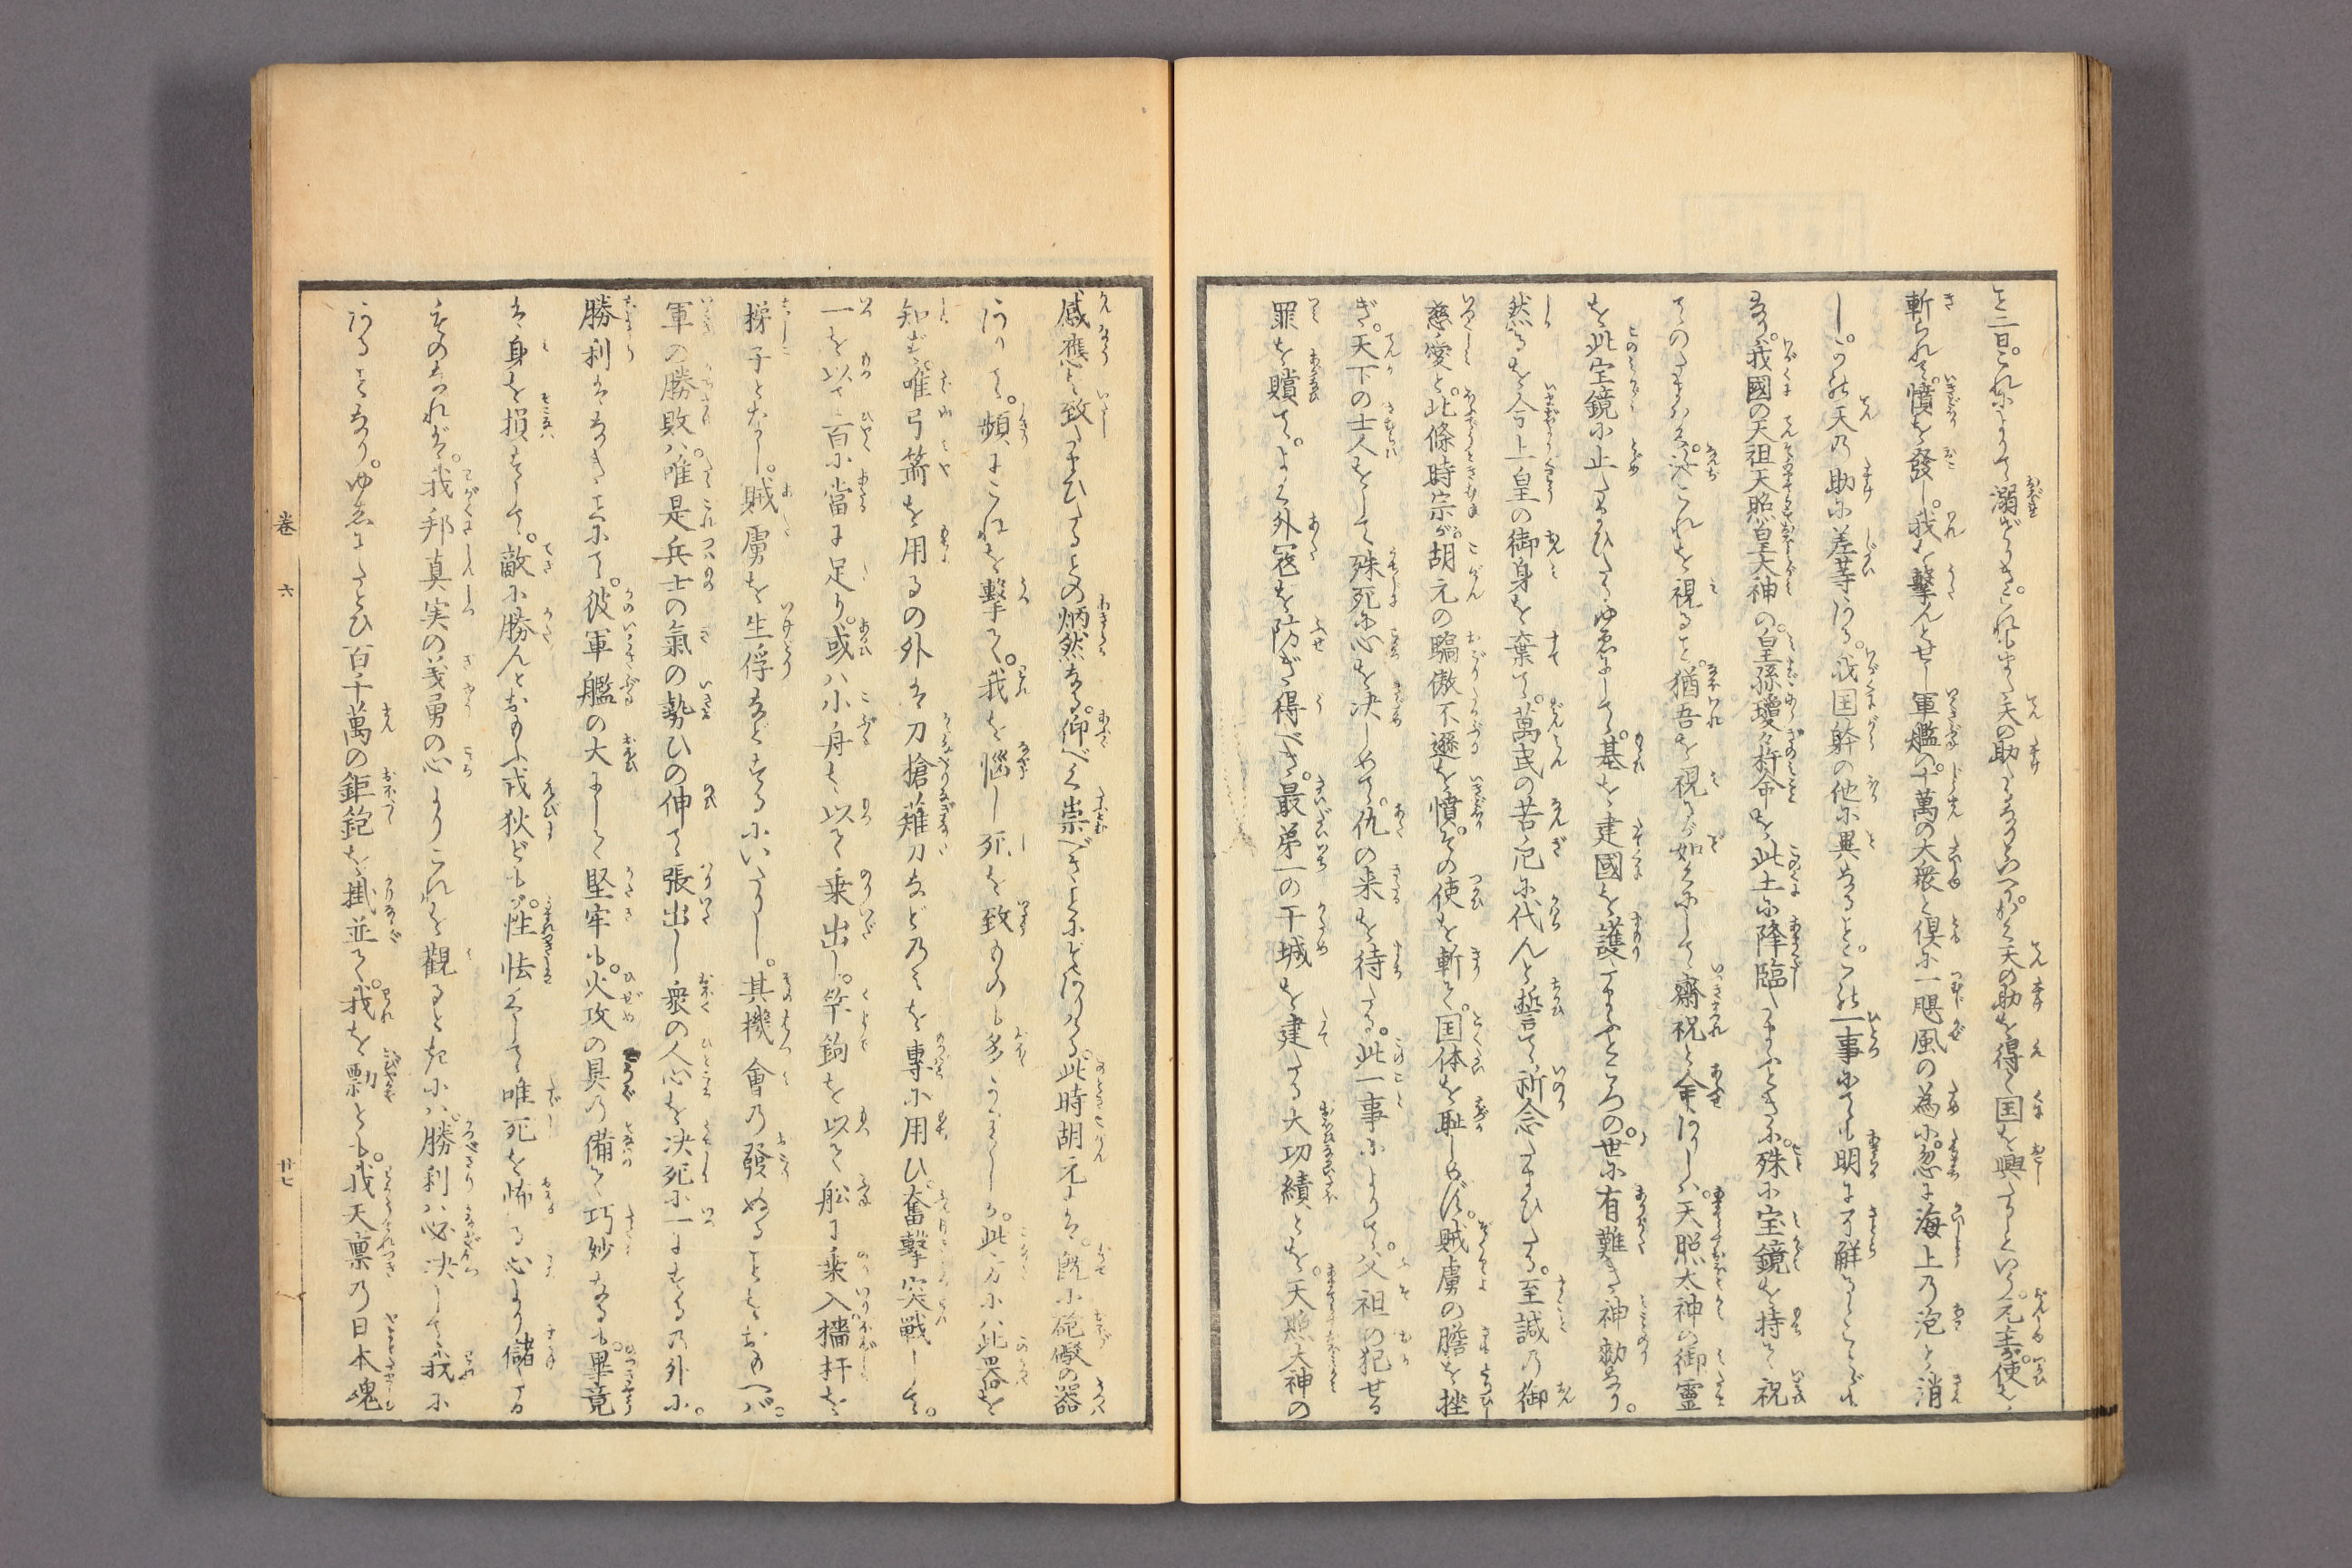 斬られて。憤を發し。我を撃んとせし軍艦の。十萬の大衆と倶に一颶風の為に。忽に海上の泡と消
し。これ天乃助に差等ある。我国躰の他に異なること。これ一事にても明に了解
なり。我國の天祖天照皇大神の。皇孫瓊々杵命を。此土に降臨たまふときに。殊に宝鏡を持て。祝
てのたまはく。汝これを視ること。猶吾を視るが如くにして。齋祝と命ありしハ。天照大神の御霊
を此宝鏡に止たまひたるゆゑにして。基を建國を護たまふところの。世に有難き神勅なり。
然るを今上皇の御身を棄て。萬民の苦厄に代んと誓て。祈念たまひたる。至誠乃御
慈愛と。此條時宗が。胡元の驕傲不遜を憤。その使を斬て。国体を耻しめず。賊虜の膽を挫
ぎ。天下の士人をして。殊死に心を决しめて。仇の来を待たる。此一事によりて。父祖の犯せる
罪を贖て。よく外冦を防ぎ得べき。最第一の干城を建たる大功績とを。天照大神の
感應を致たまひたることの炳然なる。仰べく崇べきことにぞありける。此時胡元にて。既に砲礮の器
ありて。頻にこれを撃て。我を惱し死を致ものも多かりしが。此方にハ此器を
知ず。唯弓箭を用るの外は。刀槍薙刀などのみを專に用ひ。奮撃突戰して。
一を以て百に當に足り。或ハ小舟を以て乗出し。竿鉤を以て舩に乗入。檣杆を
梯子となし。賊虜を生俘などするにいたりし。其機會乃發ぬることをおもへば。
軍の勝敗ハ。唯是兵士の氣の勢ひの伸て張出し。衆の人心を决死に一にするの外に。
勝利はなきことにて。彼軍艦の大にして堅牢も。火攻の具の備て巧妙なるも。畢竟
は身を損ずして。敵に勝んとおもふ戎狄どもが。性怯くして唯死を怖る心より儲たる
ものなれば。我邦真実の義勇の心よりこれを觀るときにハ。勝利ハ必决して我に
あることなり。ゆゑにたとひ百千萬の鉅銃を掛並て。我を剽とも。我天禀乃日本魂
巻
六
廿七